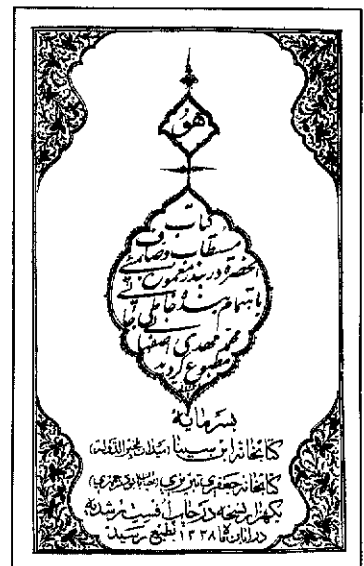 هو
کتاب
مستطاب وصاف
الحضرة در بندر معموره بمبئی
باهتمام بنده حاجی
محمد مهدی اصفهانی
مطبوع گردید
بسرمایهٔ
کتابخانه ابن سینا (میدان مخبرالدوله)
کتابخانه جعفری تبریزی (خیابان بوذرجمهری)
یکهزار نسخه در چاپ افست رشدیه
در آبان ماه ۱۳۳۸ بطبع رسید